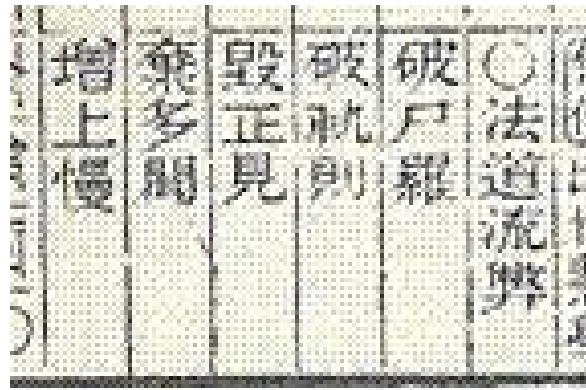 ○法道流弊
破尸羅
破軌則
毀正見
棄多聞
增上慢